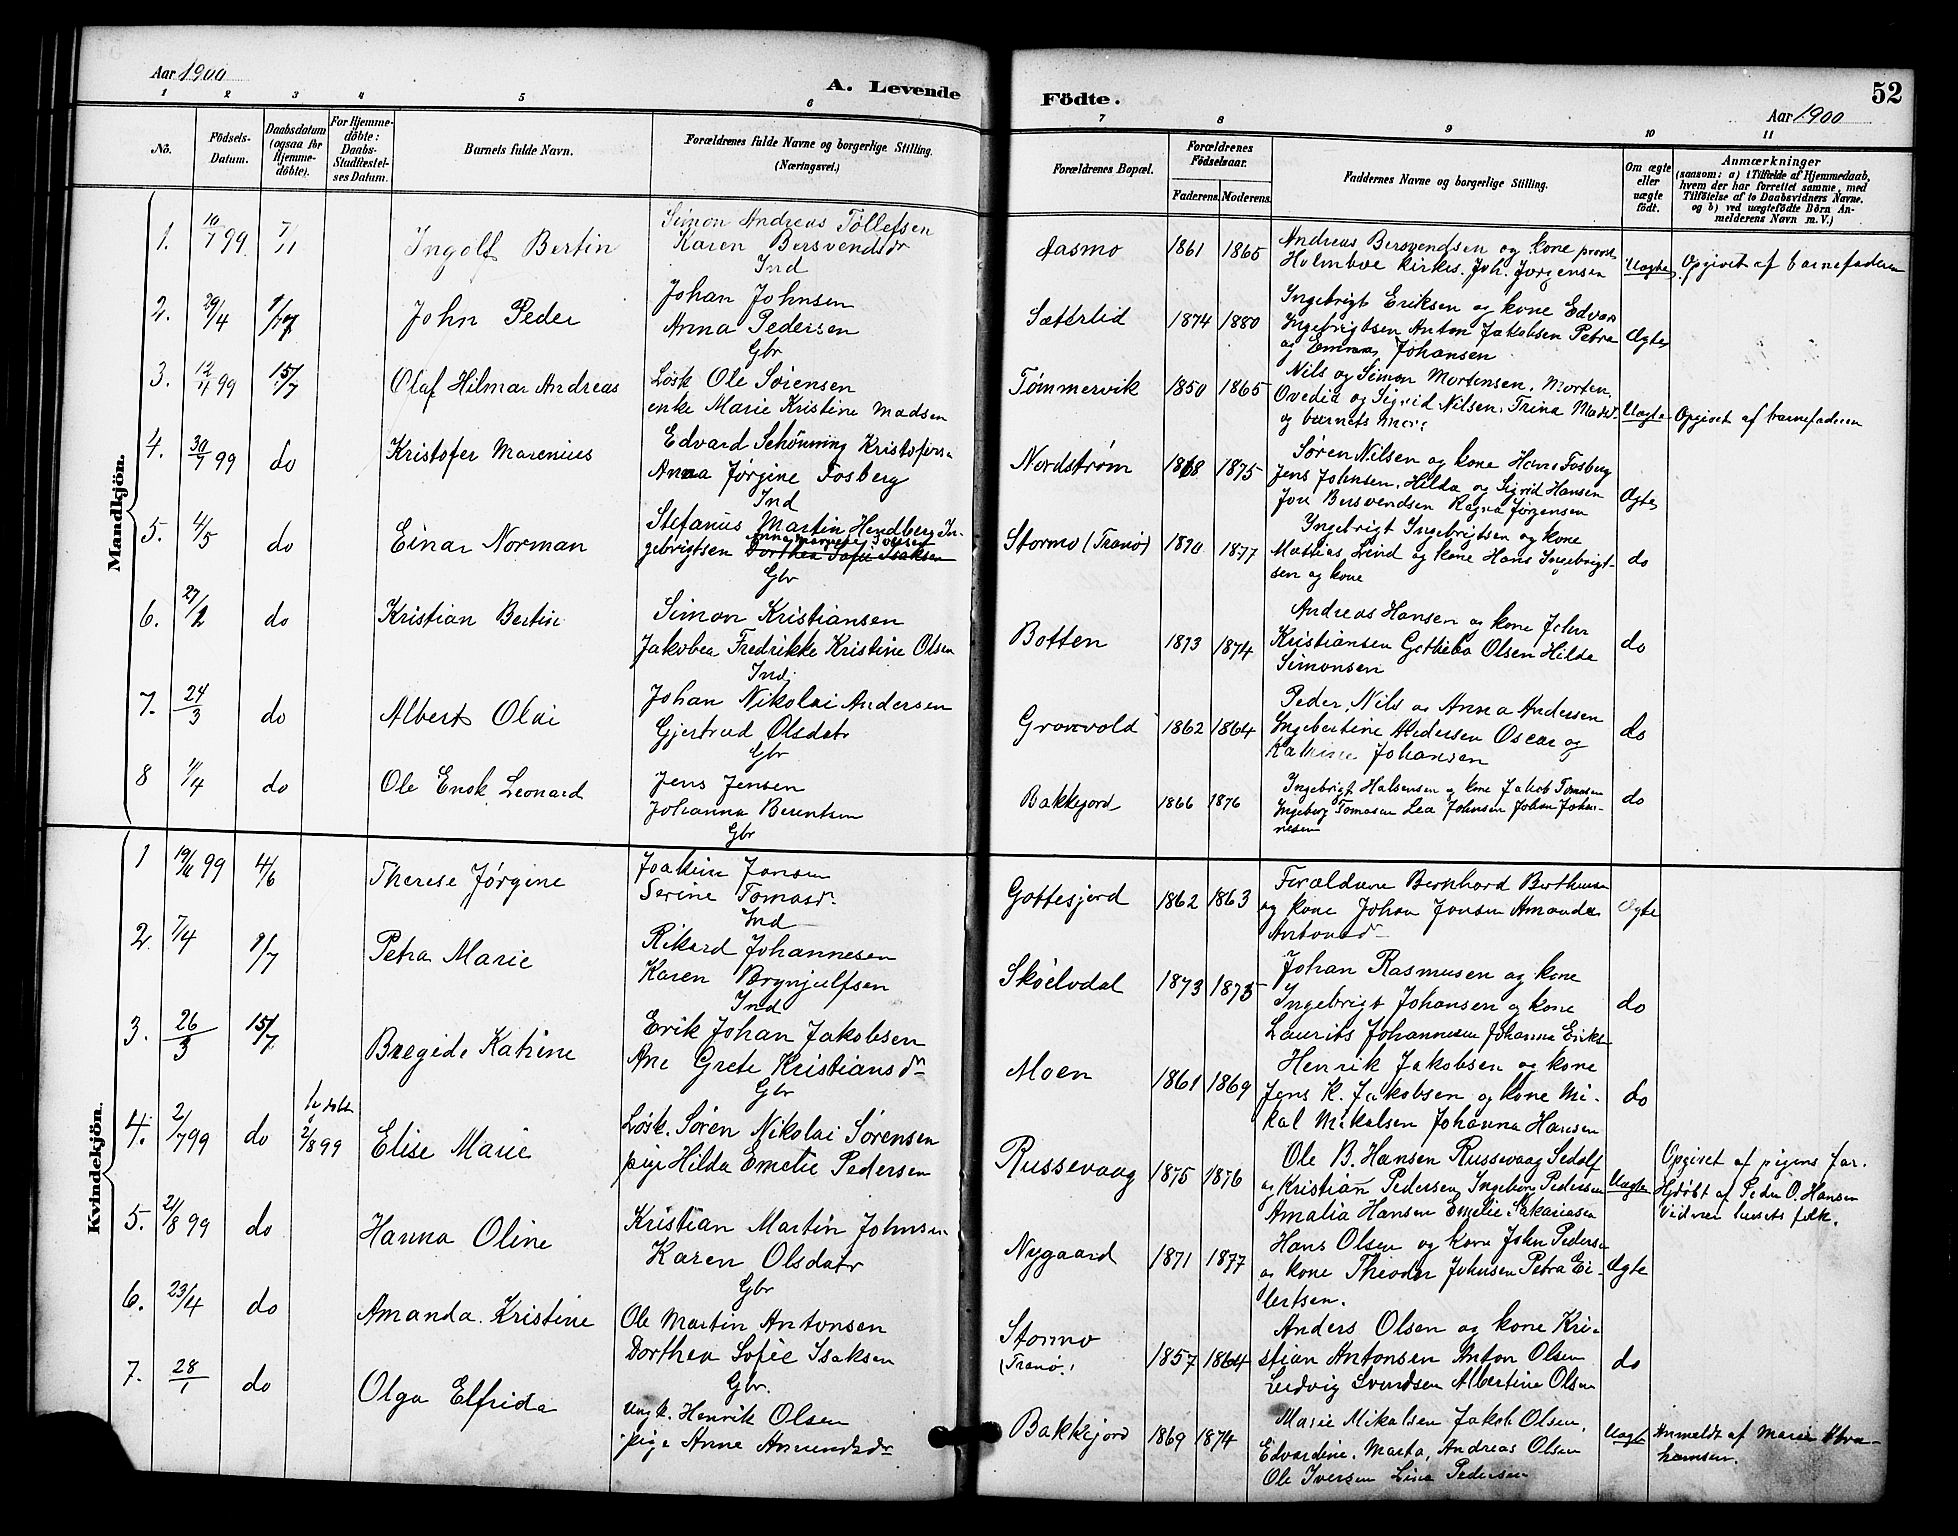 Aar 1900
A. Levende
Födte.
52
Aar 1900
1 2 3 4 5 6 7 8 9 10 11
No.
Födsels-Datum.
Daabsdatum (ogsaa for Hjemme-döbte).
For Hjemme-döbte: Daabs-Stadfæstel-ses Datum.
Barnets fulde Navn.
Forældrenes fulde Navne og borgerlige Stilling.
(Næringsvei.)
Forældrenes Bopæl.
Forældrenes Födselsaar.
Faderens. Moderens.
Faddernes Navne og borgerlige Stilling.
Om ægte eller uægte födt.
Anmærkninger
(saasom: a) i Tilfælde af Hjemmedaab,
hvem der har forrettet samme, med
Tilföielse af to Daabsvidners Navne.
og b) ved uægtefödte Börn An-
melderens Navn m. V.)
Mandkjön.
1. 10/7 99 7/1 Ingolf Bertin
Simon Andreas Tøllefsen
Karen Bersvendsdr
Ind
Aasmo 1861 1865
Andreas Bersvendsen og kone provst
Holmboe kirkes. Joh. Jørgensen
Uægte Opgivet af barnefaderen
2. 29/4 1/7 John Peder
Johan Johnsen
Anna Pedersen
Gbr
Sætterlid 1874 1880
Ingebrigt Eriksen og kone Edvar
Ingebrigtsen Anton Jakobsen Petra
og Emma Johansen
Ægte
3. 12/11 99 15/7 Olaf Hilmar Andreas
Løsk Ole Sørensen
enke Marie Kristine Madsen
Tømmervik 1850 1865
Nils og Simon Mortensen. Morten,
Ovedia og Sigrid Nilsen. Trina Mads.
og barnets Mor:
Uægte Opgivet af barnefaderen
4. 30/7 99 do Kristofer Marenius
Edvard Schønning Kristofers.
Anna Jørgine Fosberg
Ind
Nordstrøm 1868 1875
Søren Nilsen og kone Hans Fosberg
Jens Johnsen. Hilda og Sigrid Hansen
Jon Bersvendsen Ragna Jørgensen
Ægte
5. 4/5 do Einar Norman
Stefanus Martin Hendberg In-
gebrigtsen Dorthea Sofie Isaksen
Gbr
Stormo (Tranø) 1870 1877
Ingebrigt Ingebrigtsen og kone
Mathias Lind og kone Hans Ingebrigt-
sen og kone
do
6. 27/2 do Kristian Bertin
Simon Kristiansen
Jakobea Fredrikke Kristine Olsen
Ind.
Botten 1873 1874
Andreas Hansen og kone John
Kristiansen Gotheba Olsen Hilda
Simonsen
do
7. 24/3 do Albert Olai
Johan Nikolai Andersen
Gjertrud Olsdatr
Gbr
Grønvold 1862 1864
Peder, Nils og Anna Andersen
Ingebertine Andersen Oscar og
Katrine Johansen
do
8 11/4 do Ole Enok Leonard
Jens Jensen
Johanna Berentsen
Gbr
Bakkejord 1866 1876
Ingebrigt Halvensen og kone Jakob Tomasen
Ingeborg Tomasen Lea Johnsen Johan Johan-
nesen
do
Kvindekjön.
1 19/11 99 4/6 Therese Jørgine
Joakim Jonsen
Serine Tomasdr.
Ind
Gottesjord 1862 1863
Forældrene Bernhard Berthunsen
og kone Johan Jonsen Amanda
Antonsdr
Ægte
2. 7/4 1/7 Petra Marie
Rikard Johannesen
Karen Brynjulfsen
Ind
Skøelvdal 1873 1875
Johan Rasmusen og kone
Ingebrigt Johansen og kone
Laurits Johannesen Johanna Eriks
do
3. 26/3 15/7 Bregide Katrine
Erik Johan Jakobsen
Ane Grete Kristiansdr
Gbr
Moen 1861 1869
Henrik Jakobsen og kone
Jens K. Jakobsen og kone Mi-
kal Mikalsen Johanna Hansen
do
4. 2/7 99 do 2/8 99 Elise Marie
Løsk. Søren Nikolai Sørensen
pige Hilda Emelie Pedersen
Russevaag 1875 1876
Ole B. Hansen Russevaag Sedolf
og Kristian Pedersen Ingeborg Pedersen
Amalia Hansen Emelie Sakariasen
Uægte Opgivet af pigens far.
Hjdøbt af Peder O. Hansen
Vidner husets folk.
5. 21/8 99 do Hanna Oline
Kristian Martin Johnsen
Karen Olsdatr
Gbr
Nygaard 1871 1877
Hans Olsen og kone John Peders
og kone Theodor Johnsen Petra Ei-
lertsen.
Ægte
6. 23/4 do Amanda Kristine
Ole Martin Antonsen
Dorthea Sofie Isaksen
Gbr.
Stormo
(Tranø)
1857 1864
Anders Olsen og kone Kri-
stian Antonsen Anton Olsen
Ludvig Svendsen Albertine Olsen
do
7. 28/1 do Olga Elfrida
Ungk. Henrik Olsen
pige Anne Amundsdr
Bakkejord 1869 1874
Marie Mikalsen Jakob Olsen,
Edvardine, Marta, Andreas Olsen
Ole Iversen Lina Pedersen
Uægte Anmeldt af Marie Abra-
hamsen.